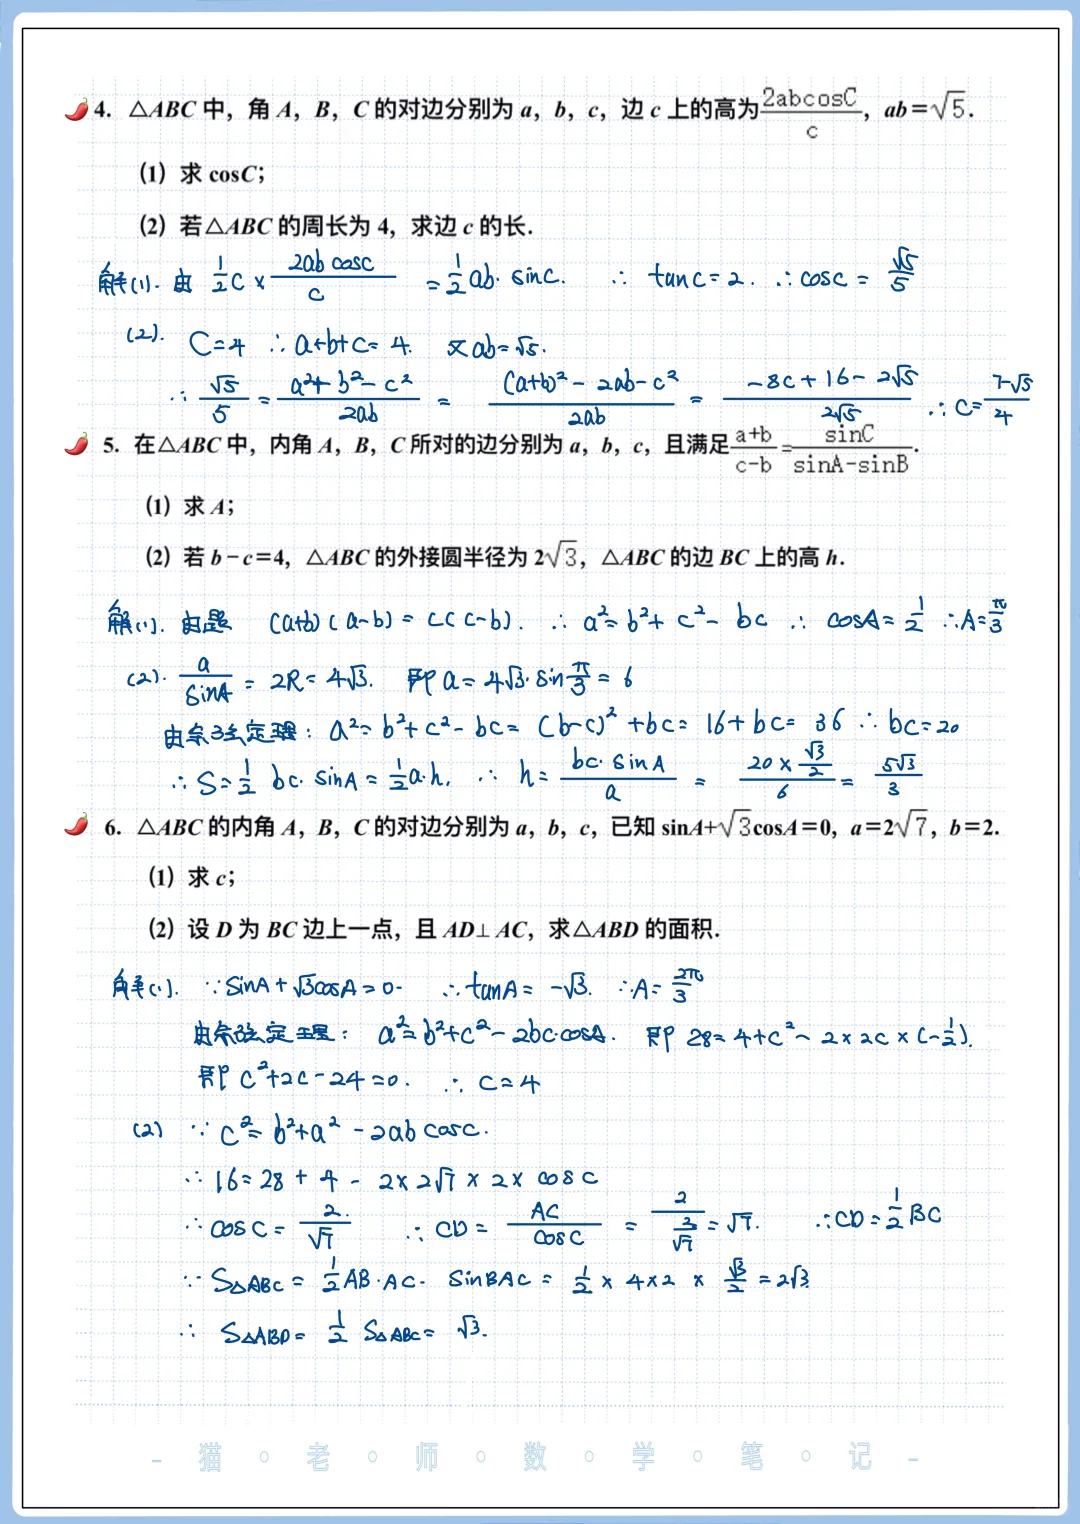 4. △ABC 中，角 A，B，C 的对边分别为 a，b，c，边 c 上的高为 2abcosC/c，ab＝√5.
(1) 求 cosC；
(2) 若△ABC 的周长为 4，求边 c 的长.
解(1). 由 1/2 C × 2ab cosc/c = 1/2 ab· sinc. ∴ tanc=2. ∴cosc = √5/5
(2). C=4 ∴a+b+c=4. 又ab=√5.
∴ √5/5 = a²+b²-c²/2ab = (a+b)²-2ab-c²/2ab = -8c+16-2√5/2√5 ∴c=7-√5/4
5. 在△ABC 中，内角 A，B，C 所对的边分别为 a，b，c，且满足 a+b/c-b = sinC/sinA-sinB.
(1) 求 A；
(2) 若 b－c＝4，△ABC 的外接圆半径为 2√3，△ABC 的边 BC 上的高 h.
解(1). 由题 (a+b)(a-b) = c(c-b). ∴ a²=b²+c²-bc ∴ cosA=1/2 ∴A=π/3
(2). a/sinA = 2R=4√3. 即a=4√3·sinπ/3=6
由余弦定理: a²=b²+c²-bc=(b-c)²+bc=16+bc=36 ∴bc=20
∴S=1/2 bc·sinA=1/2a·h. ∴ h= bc·sinA/a = 20×√3/2/6 = 5√3/3
6. △ABC 的内角 A，B，C 的对边分别为 a，b，c，已知 sinA+√3cosA＝0，a＝2√7，b＝2.
(1) 求 c；
(2) 设 D 为 BC 边上一点，且 AD⊥AC，求△ABD 的面积.
解(1). ∵sinA+√3cosA=0. ∴tanA=-√3. ∴A=2π/3
由余弦定理: a²=b²+c²-2bc·cosA. 即 28=4+c²-2×2c×(-1/2).
即 c²+2c-24=0. ∴ c=4
(2) ∵ c²=b²+a²-2ab cosc.
∴16=28+4-2×2√7×2×cosC
∴cosC=2/√7 ∴CD= AC/cosC = 2/2/√7 =√7. ∴CD=1/2BC
∵S△ABC=1/2AB·AC·sinBAC=1/2×4×2×√3/2=2√3
∴ S△ABD=1/2 S△ABC= √3.
- 猫 · 老 · 师 · 数 · 学 · 笔 · 记 -